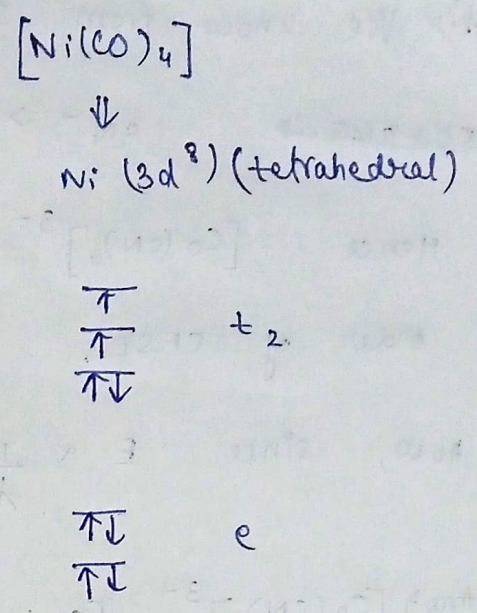 [Ni(CO)4]
⇓
Ni (3d8) (tetrahedral)
↑
↑ t2
↑↓
↑↓ e
↑↓